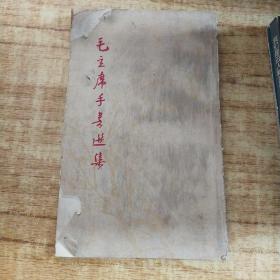 毛主席手书选集